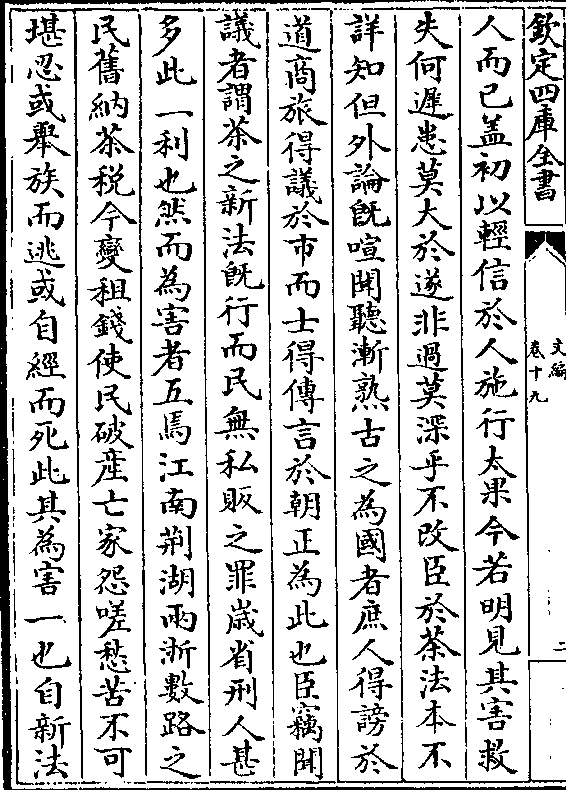 欽定四庫全書
文編
卷十九
二
人而已蓋初以輕信於人施行太果今若明見其害救
失何遲患莫大於遂非過莫深乎不改臣於茶法本不
詳知但外論既喧聞聽漸熟古之為國者庶人得謗於
道商旅得議於市而士得傳言於朝正為此也臣竊聞
議者謂茶之新法既行而民無私販之罪歳省刑人甚
多此一利也然而為害者五焉江南荆湖兩浙數路之
民舊納茶税今變租錢使民破産亡家怨嗟愁苦不可
堪忍或舉族而逃或自經而死此其為害一也自新法